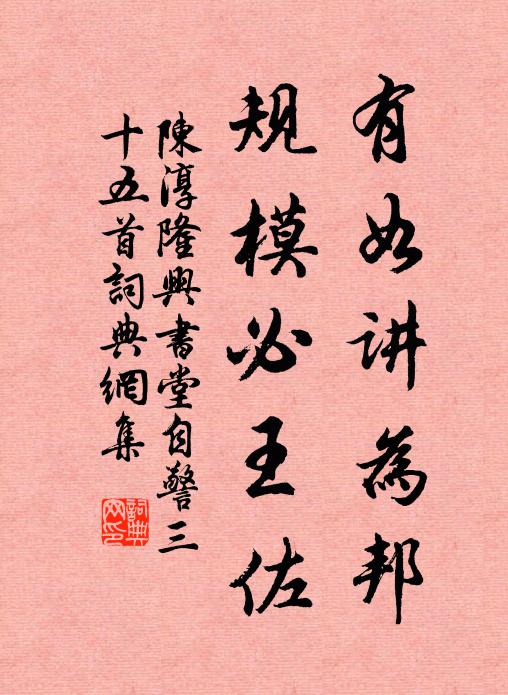 有如讲為邦
規模必王佐
陳淳隆興書堂自警三
十五首詞典網集
詞典
网印